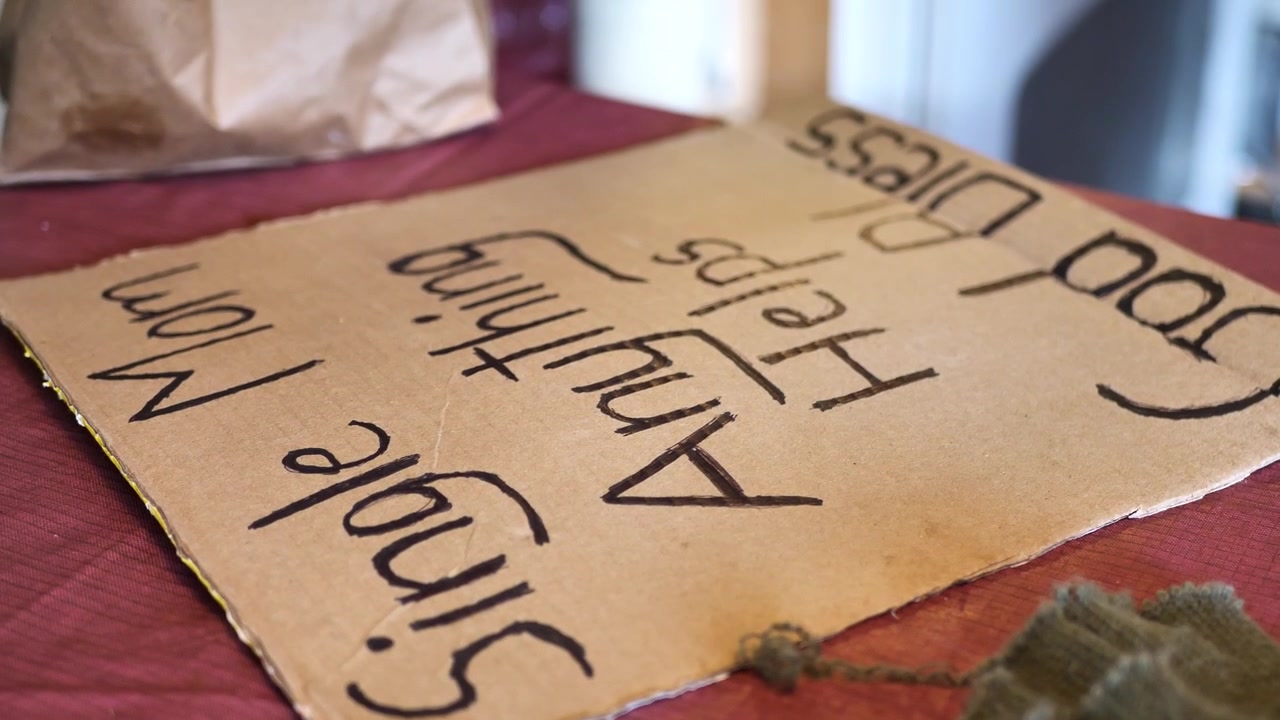 Single Mom
Anything
Helps
God Bless